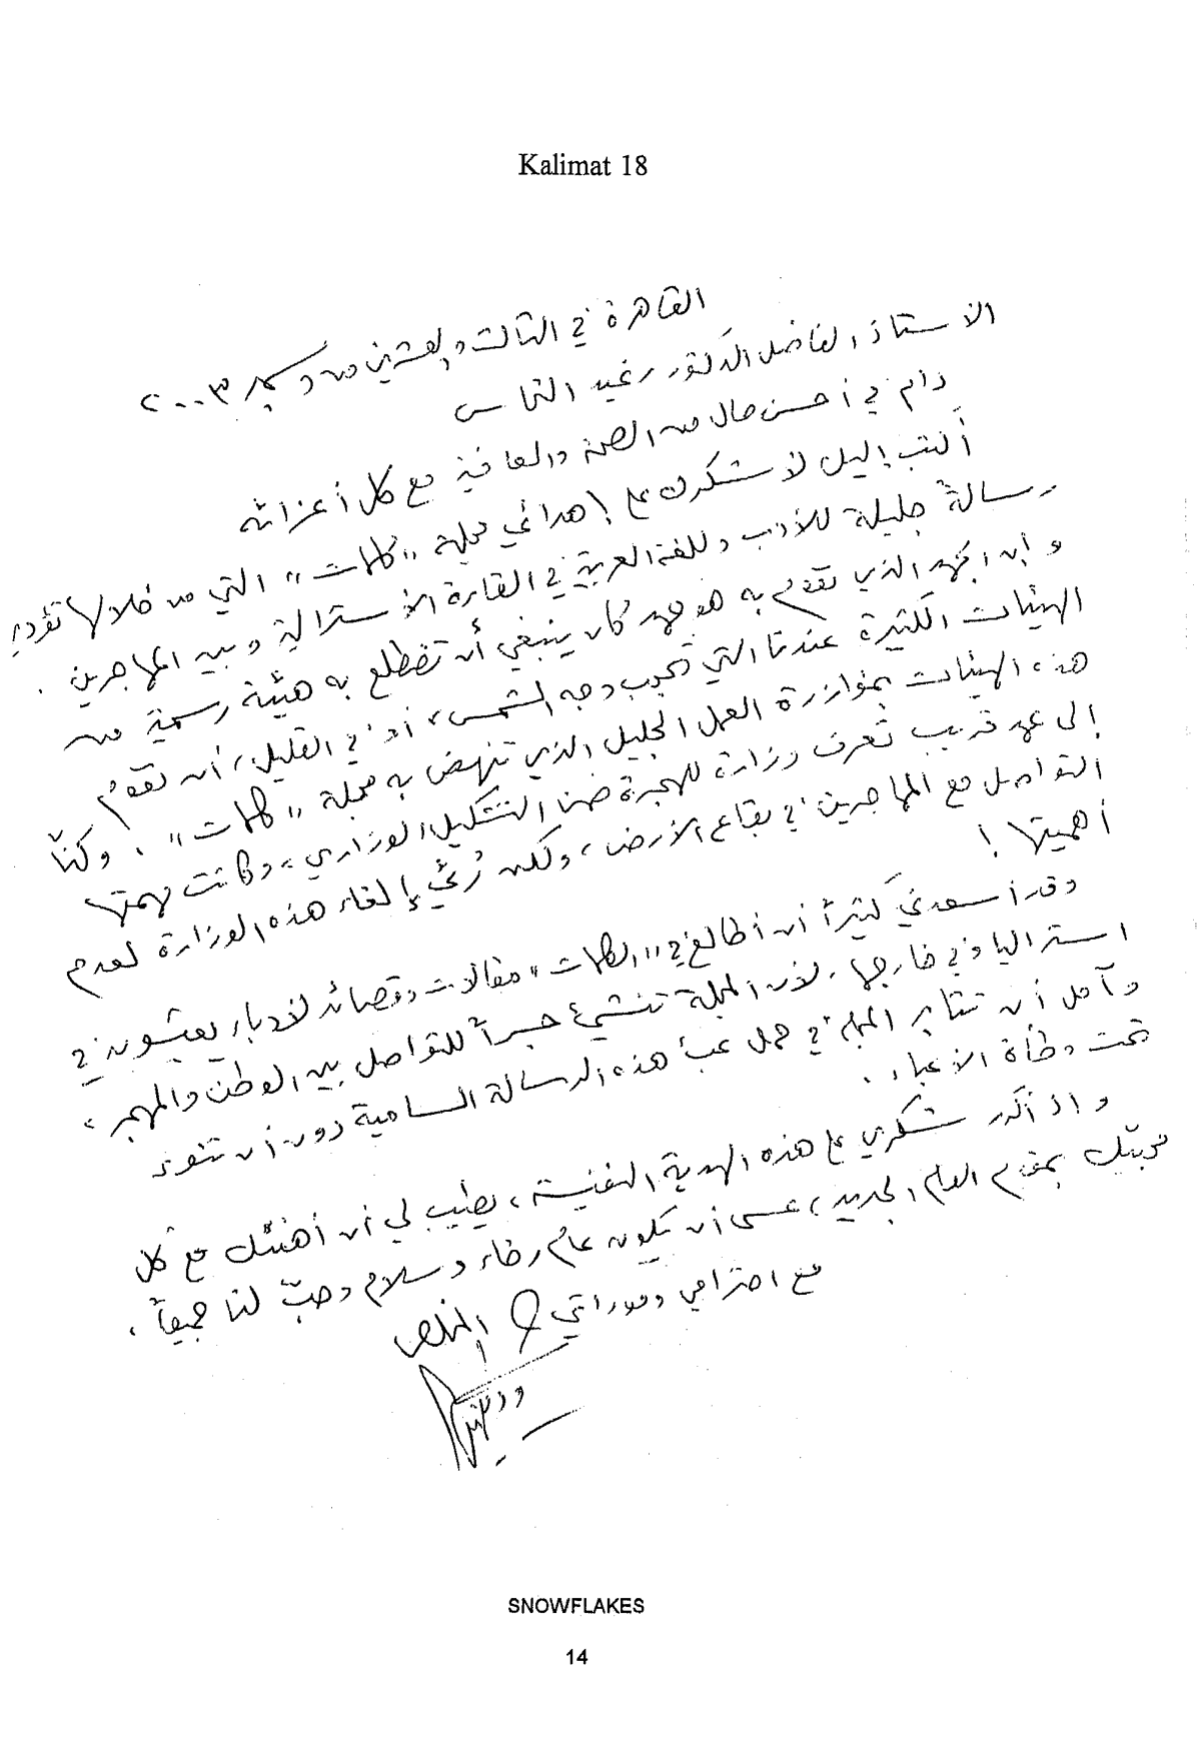 Kalimat 18
القاهرة في الثالث والعشرين من ديسمبر ٢٠٠٣
الأستاذ الفاضل الدكتور رغيد النحاس
دام في أحسن حال من الصحة والعافية مع كل أعزائه
أكتب إليك لأشكرك على إهدائي مجلة "كلمات" التي من خلالها تؤدي
رسالة جليلة للأدب وللغة العربية في القارة الأسترالية وبين المهاجرين .
وإن الجهد الذي تقوم به هو جهد كان ينبغي أن تضطلع به هيئة رسمية من
الهيئات الكثيرة عندنا التي تحجب وجه الشمس، أو في القليل، أن تقوم
هذه الهيئات بمؤازرة العمل الجليل الذي تنهض به مجلة "كلمات" . وكنّا
إلى عهد قريب نعرف وزارة للهجرة ضمن التشكيل الوزاري، وكانت مهمتها
التواصل مع المهاجرين في بقاع الأرض، ولكن رُئي إلغاء هذه الوزارة لعدم
أهميتها !
وقد أسعدني كثيراً أن أطالع في "كلمات" مقالات وقصائد لأدباء يعيشون في
استراليا وفي خارجها، لأن المجلة تنشئ جسراً للتواصل بين الوطن والمهجر،
وآمل أن تثابر المجلة في حمل عبء هذه الرسالة السامية دون أن تنوء
تحت وطأة الأعباء .
وإذ أكرر شكري على هذه الهدية النفيسة، يطيب لي أن أهنئك مع كل
محبتك بمقدم العام الجديد، عسى أن يكون عام رخاء وسلام وحبّ لنا جميعاً .
مع احترامي ومودتي المخلص
SNOWFLAKES
14